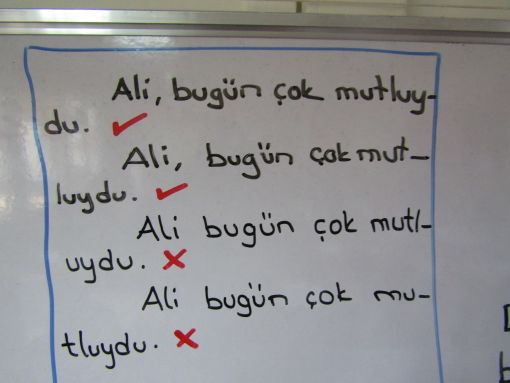 Ali, bugün çok mutluy-
du. ✓
Ali, bugün çok mut-
luydu. ✓
Ali bugün çok mutl-
uydu. ✗
Ali bugün çok mu-
tluydu. ✗